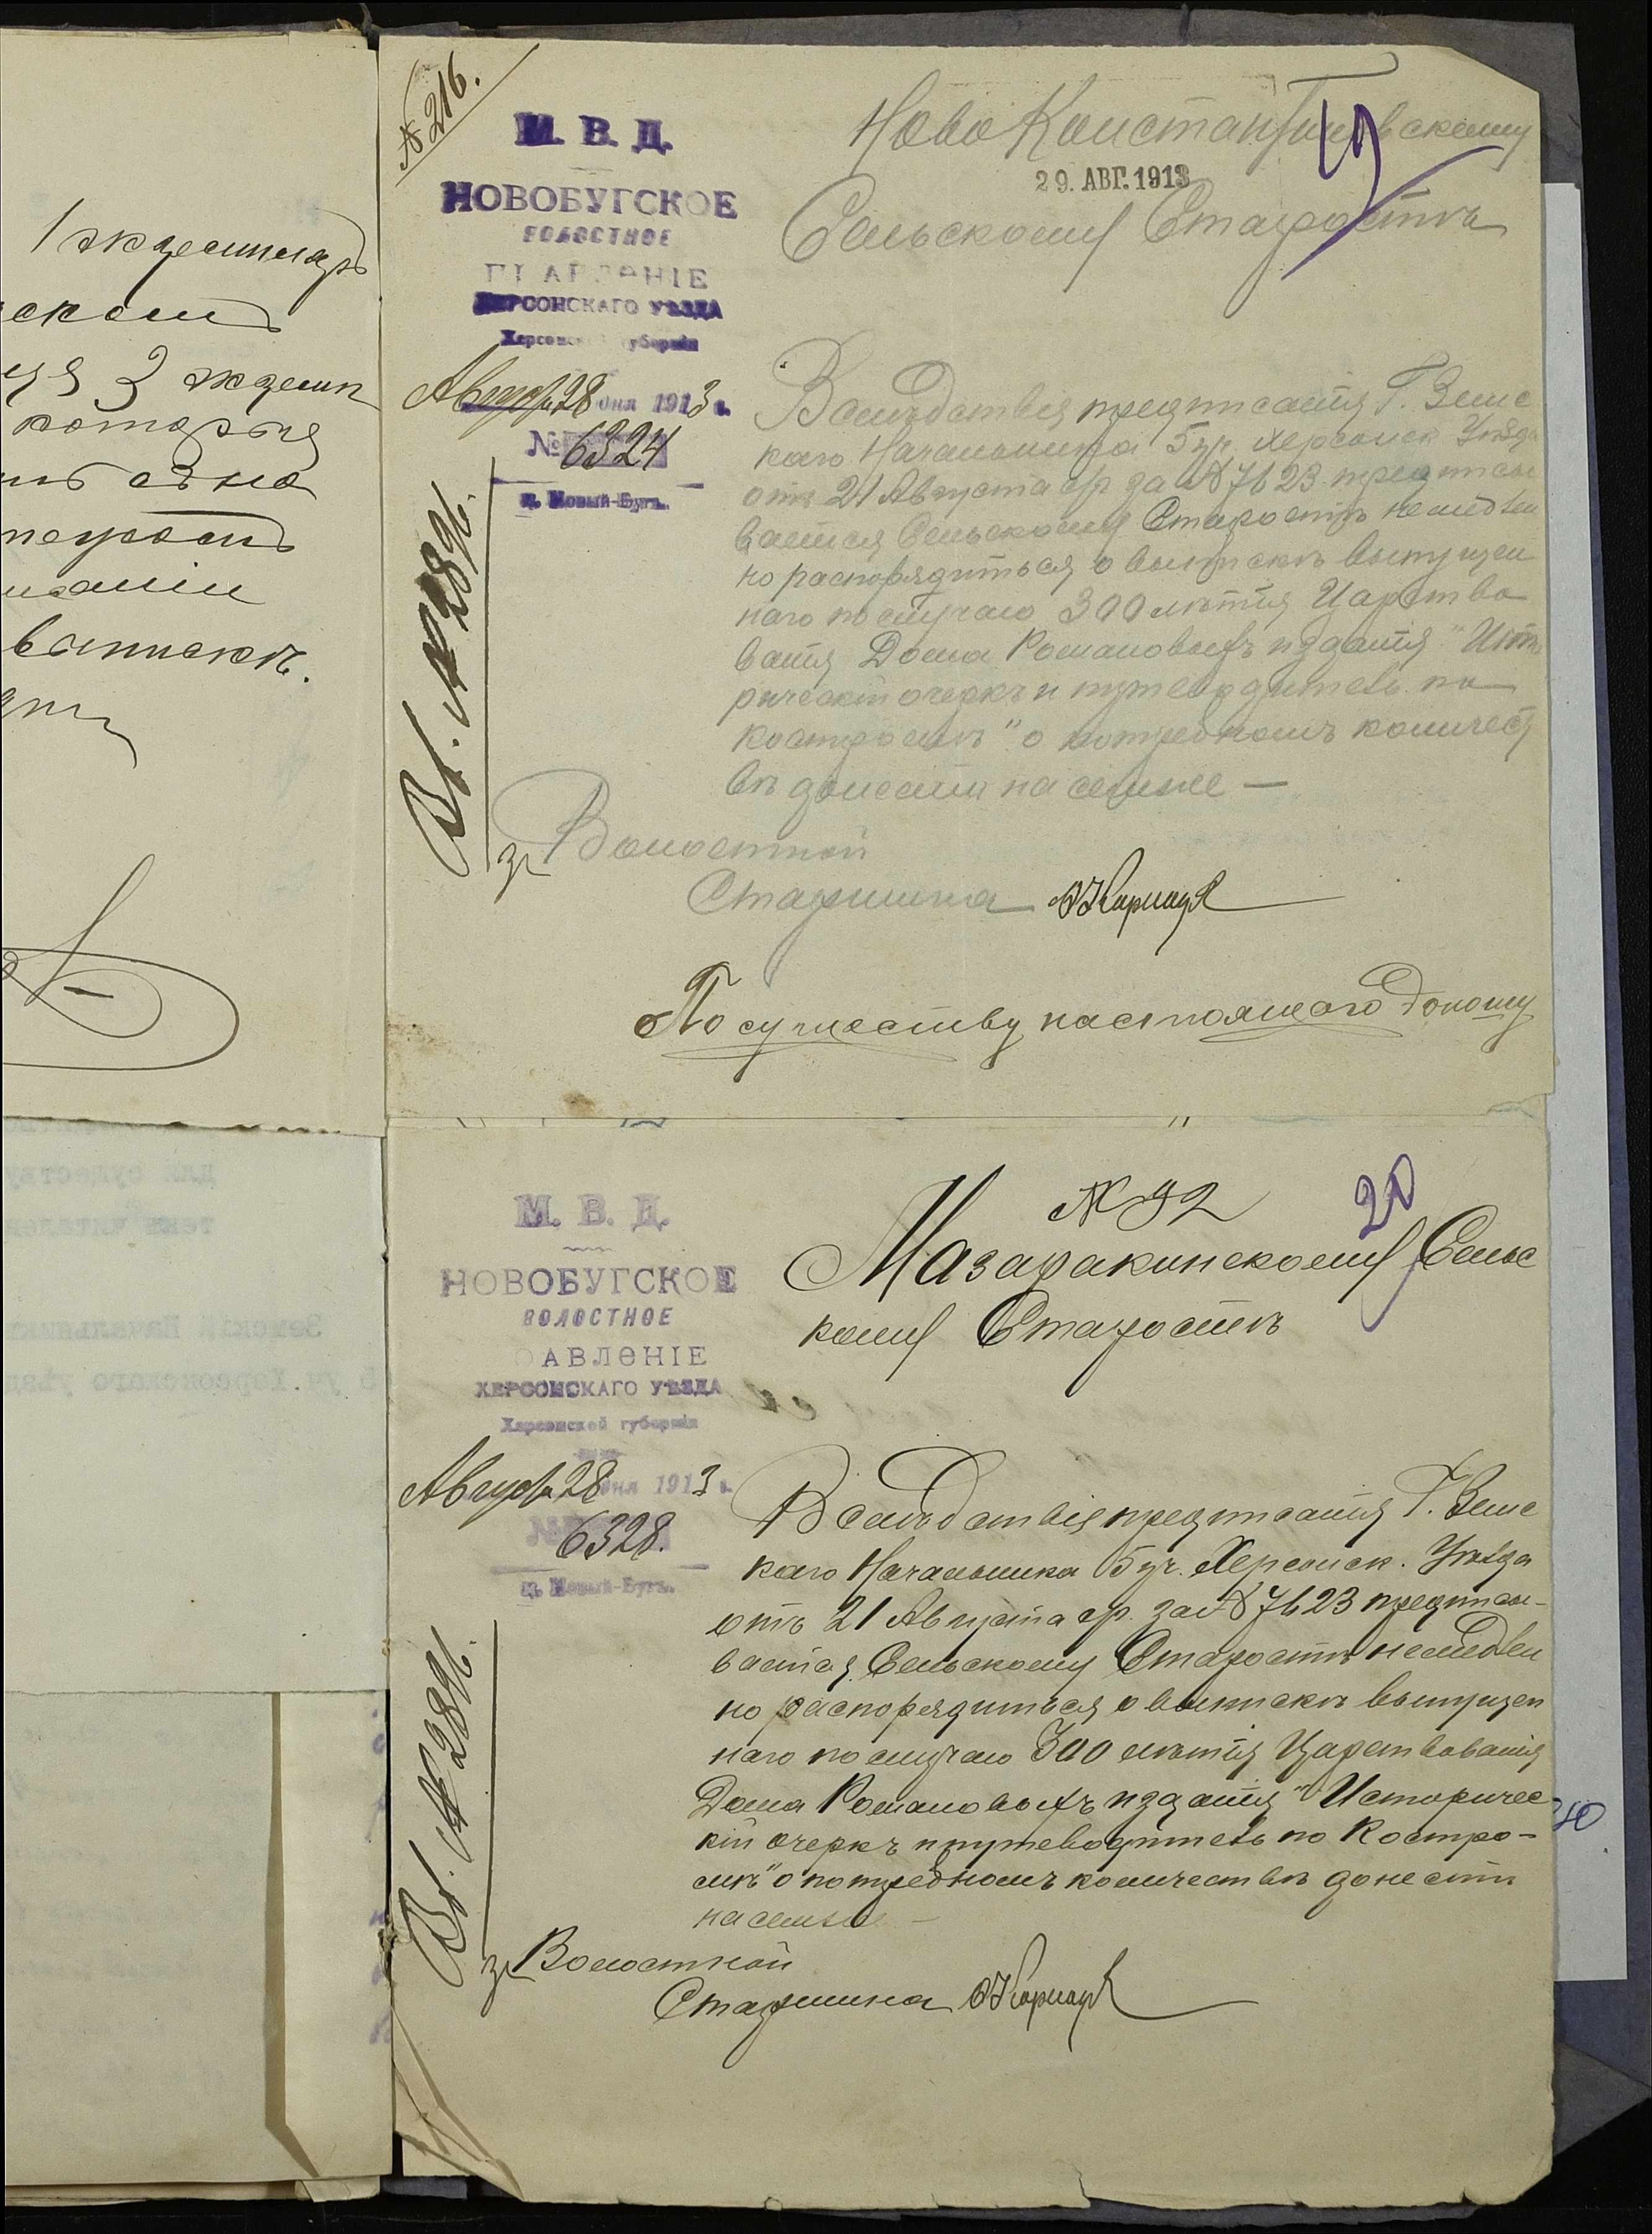 1 экземпляръ
скомъ
3 экземп
которыя
выпискѣ.
№ 216.
М. В. Д.
НОВОБУГСКОЕ
ВОЛОСТНОЕ
ПРАВЛЕНІЕ
ХЕРСОНСКАГО УѢЗДА
Херсонской губерніи
Августа 28 дня 1913 г.
№ 6324
м. Новый-Бугъ.
Вх. № 2896.
Ново Константиновскому
19
29. АВГ. 1913
Сельскому Старостѣ
Вслѣдствія предписанія Г. Земс
каго Начальника 5 уч. Херсонск Уѣзда
отъ 21 Августа с/г за № 7623 предписы
вается Сельскому Старостѣ немедлен
но распорядиться о выпискѣ выпущен
наго по случаю 300 лѣтія Царство
ванія Дома Романовыхъ изданія "Исто
рическій очеркъ и путеводитель по
Костромѣ" о потребномъ количест
вѣ донести на семже —
за Волостной
Старшина
По существу настоящаго доношу
М. В. Д.
НОВОБУГСКОЕ
ВОЛОСТНОЕ
АВЛЕНІЕ
ХЕРСОНСКАГО УѢЗДА
Херсонской губерніи
Августа 28 дня 1913 г.
№ 6328.
м. Новый-Бугъ.
Вх. № 2896.
№ 92
20
Мазаракинскому Сельс
кому Старостѣ
Вслѣдствія предписанія Г. Земс
каго Начальника 5 уч. Херсонск. Уѣзда
отъ 21 Августа с/г. за № 7623 предписы-
вается Сельскому Старостѣ немедлен
но распорядиться о выпискѣ выпущен
наго по случаю 300 лѣтія Царствованія
Дома Романовыхъ изданія "Историчес
кій очеркъ и путеводитель по Костро-
мѣ" о потребномъ количествѣ донести
на семже —
за Волостной
Старшина